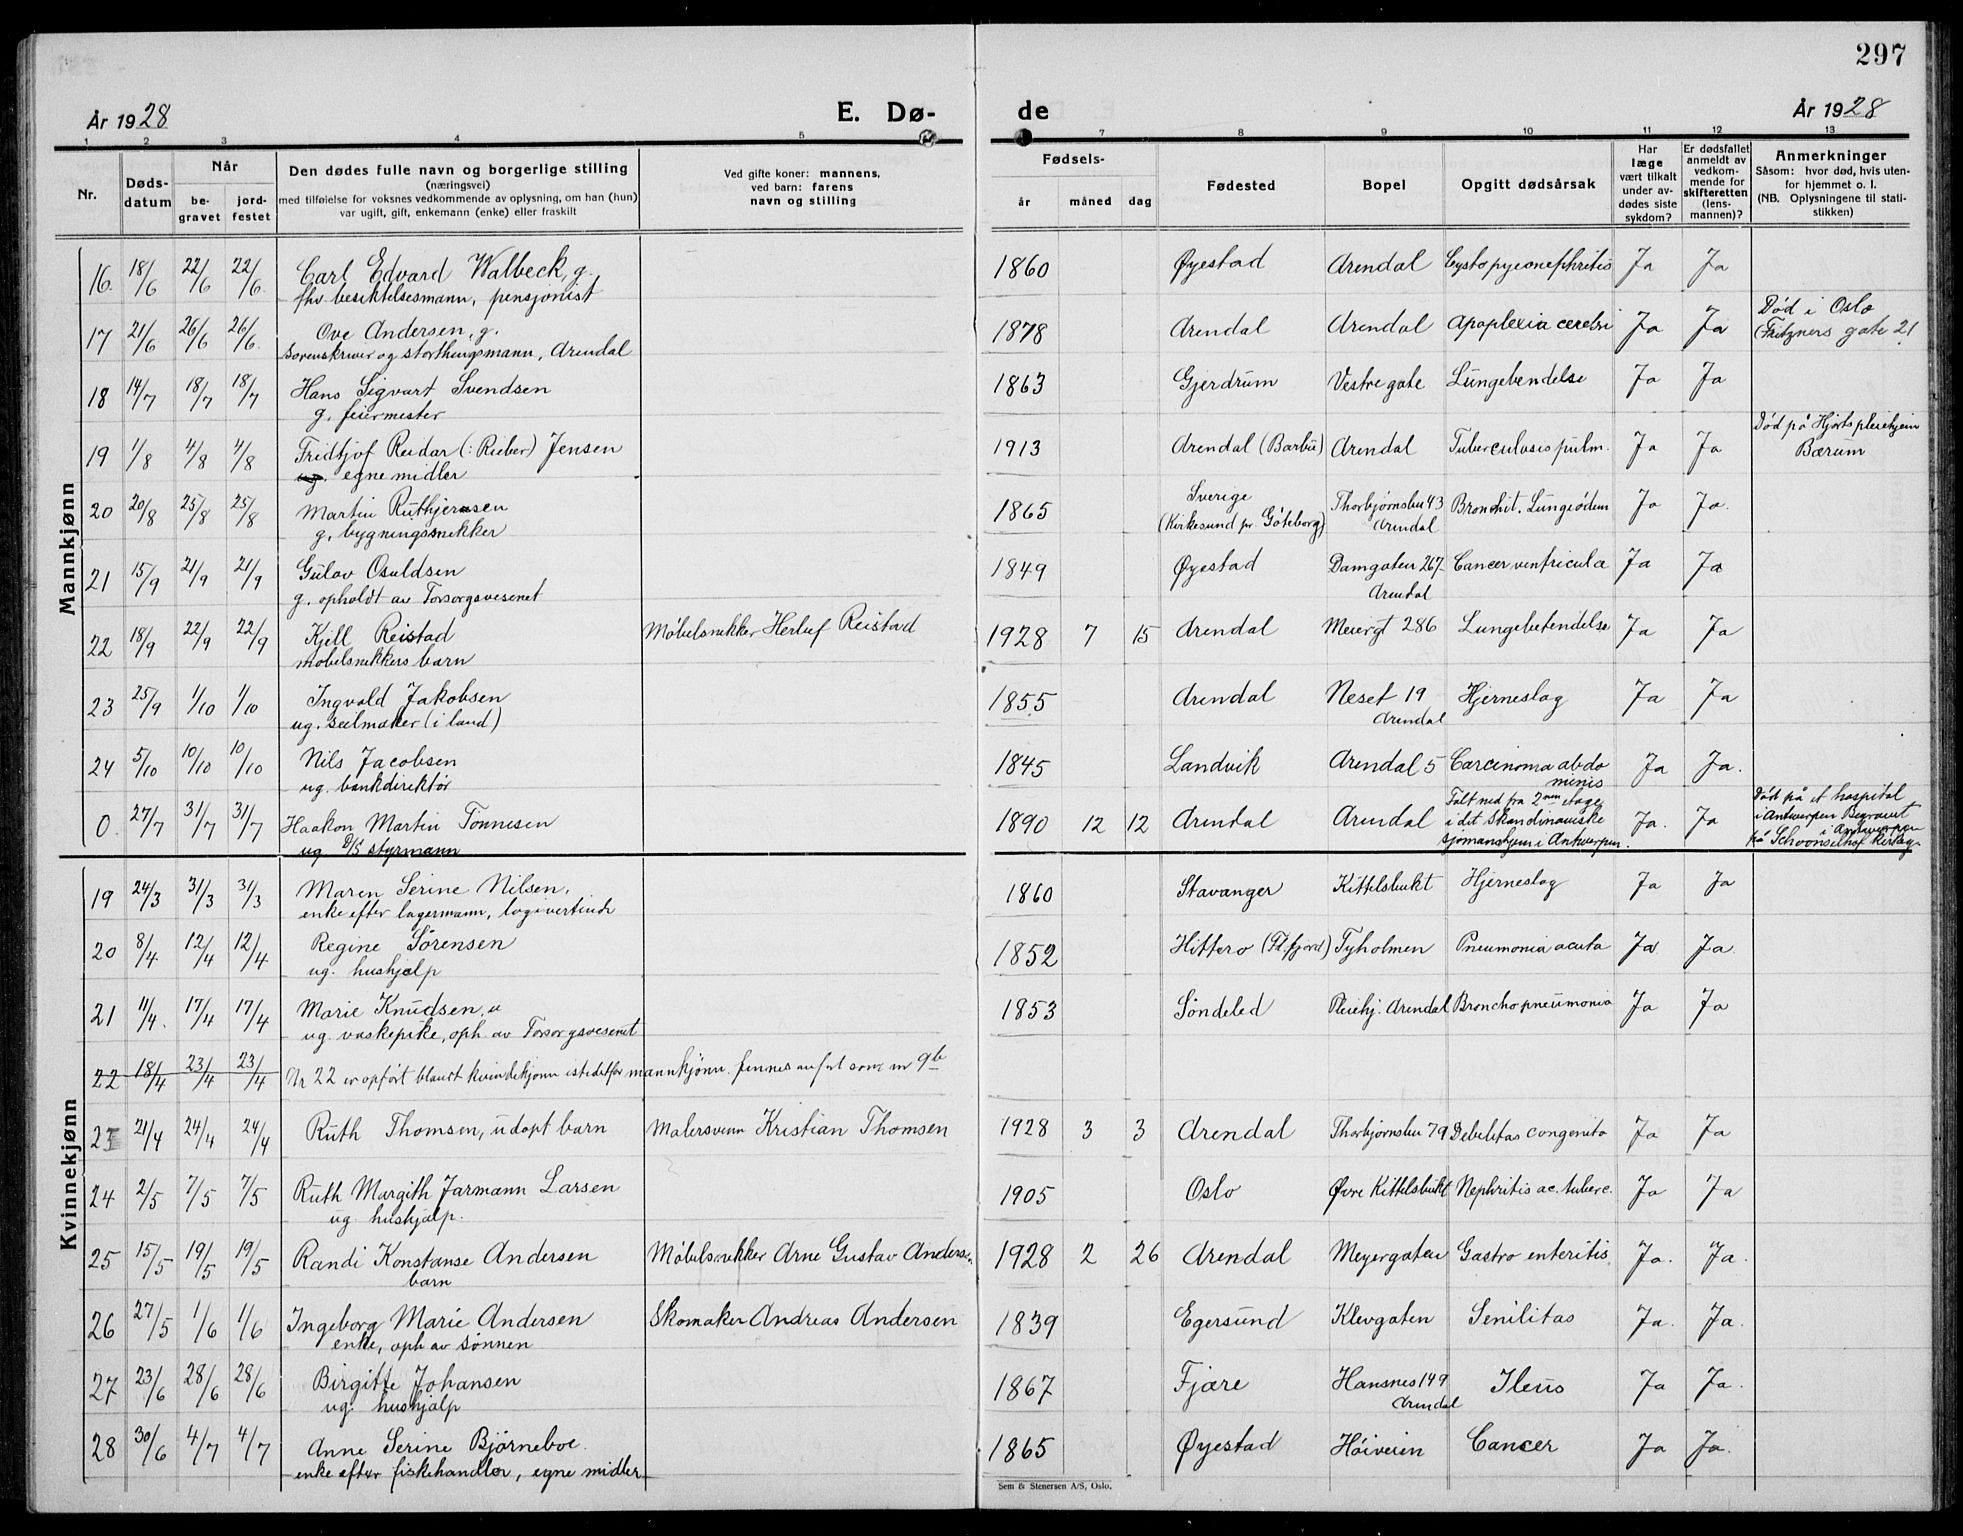 297
År 1928 E. Dø- de År 1928
1 2 3 4 5 7 8 9 10 11 12 13
Nr. Døds-datum Når be-gravet jord-festet
Den dødes fulle navn og borgerlige stilling
(næringsvei)
med tilføielse for voksnes vedkommende av oplysning, om han (hun)
var ugift, gift, enkemann (enke) eller fraskilt
Ved gifte koner: mannens,
ved barn: farens
navn og stilling
Fødsels- år måned dag
Fødested Bopel Opgitt dødsårsak
Har læge vært tilkalt under av-dødes siste sykdom?
Er dødsfallet anmeldt av vedkom-mende for skifteretten (lens-mannen)?
Anmerkninger
Såsom: hvor død, hvis uten-
for hjemmet o. l.
(NB. Oplysningene til stati-
stikken)
Mannkjønn
16. 18/6 22/6 22/6 Carl Edvard Walbeck, g. 1860 Øyestad Arendal Cystopyeonephritis Ja Ja
fhv. besiktelsesmann, pensjonist
17 21/6 26/6 26/6 Ove Andersen, g. 1878 Arendal Arendal Apoplexia cerebri Ja Ja Død i Oslo
Sorenskriver og storthingsmann, Arendal (Fritzners gate 21
18 14/7 18/7 18/7 Hans Sigvart Svendsen 1863 Gjerdrum Vestre gate Lungebendelse Ja Ja
g. feiermester
19 1/8 4/8 4/8 Fridtjof Reidar (: Rieber) Jensen 1913 Arendal (Barbu) Arendal Tuberculosis pulm. Ja Ja Død på Hjorts pleiehjem
ug. egne midler Bærum
20 20/8 25/8 25/8 Martin Ruthjersen 1865 Sverige Thorbjørnsbu 43 Bronchit. Lungeødem Ja Ja.
g. bygningssnekker (Kirkesund pr. Göteborg) Arendal
21 15/9 21/9 21/9 Gulov Osuldsen 1849 Øyestad Damgaten 267 Cancer ventricula Ja Ja
g. opholdt av Forsorgsvesenet Arendal
22 18/9 22/9 22/9 Kjell Reistad Møbelsnekker Herluf Reistad 1928 7 15 Arendal Meiergt 286 Lungebetendelse Ja Ja
møbelsnekkers barn
23 25/9 1/10 1/10 Ingvald Jakobsen 1855 Arendal Neset 19 Hjerneslag Ja Ja
ug. seilmaker (i land) Arendal
24 5/10 10/10 10/10 Nils Jacobsen 1845 Landvik Arendal 5 Carcinoma abdo Ja Ja.
ug. bankdirektør minis
0. 27/7 31/7 31/7 Haakon Martin Tønnesen 1890 12 12 Arendal Arendal Falt ned fra 2nen etage Ja. Ja Død på et hospital
ug D/S styrmann i det Skandinaviske i Antwerpen Begravet
sjømannshjem i Antwerpen. på Schoonselhof Kirkeg. i Antwerpen
Kvinnekjønn
19 24/3 31/3 31/3 Maren Serine Nilsen, 1860 Stavanger Kittelsbukt Hjerneslag Ja Ja
enke efter lagermann, logivertinde
20 8/4 12/4 12/4 Regine Sørensen 1852 Hitterø (Fl.fjord) Tyholmen Pneumonia acuta Ja Ja
ug. hushjelp
21 11/4. 17/4 17/4 Marie Knudsen, u 1853 Søndeled Pleiehj. Arendal Bronchopneumonia Ja Ja
ug. vaskepike, oph. av Forsorgsvesenet
22 18/4 23/4 23/4 Nr 22 er opført blandt kvindekjønn istedetfor mannkjønn. finnes anført som nr 9b
23 21/4 24/4 24/4 Ruth Thomsen, udøpt barn Malersvenn Kristian Thomsen 1928 3 3 Arendal Thorbjørnsbu 79 Debilitas congenita Ja Ja
24 2/5 7/5 7/5 Ruth Margith Jarmann Larsen 1905 Oslo Øvre Kittelsbukt Nephritis ac. tuberc. Ja Ja
ug. hushjalp.
25 15/5 19/5 19/5 Randi Konstanse Andersen Møbelsnekker Arne Gustav Andersen 1928 2 26 Arendal Meyergaten Gastro enteritis. Ja. Ja.
barn
26 27/5 1/6 1/6 Ingeborg Marie Andersen Skomaker Andreas Andersen 1839 Egersund Klevgaten Senilitas Ja. Ja.
enke, oph av sønnen
27 23/6 28/6 28/6 Birgitte Johansen 1867 Fjære Hansnes 149 Ileus Ja Ja.
ug. hushjalp Arendal
28 30/6 4/7 4/7 Anne Serine Bjørneboe. 1865 Øyestad Høiveien Cancer Ja Ja.
enke efter fiskehandler, egne midler
Sem & Stenersen A/S, Oslo.